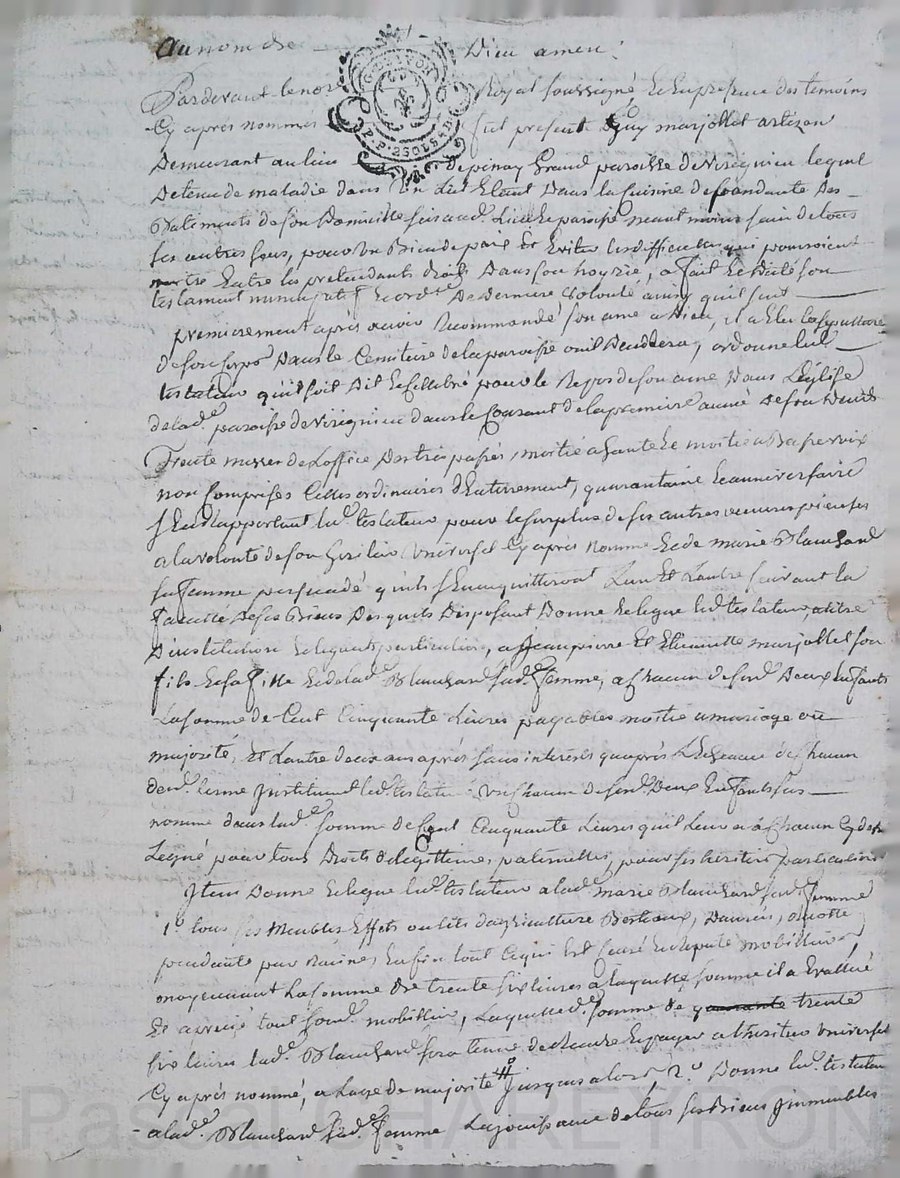 Au nom de Dieu amen
Pardevant le not^re Royal soussigné et en presence des temoins
Cy après nommés fut present Guy marjollet artizan
Demeurant au lieu d'epinay Grand paroisse de virignieu lequel
Detenu de maladie dans un Lit Etant Dans la Cuisine dependante des
Batiments de son Domicille sis aud^t. Lieu et paroisse neant moins sain de tous
ses autres sens, pour un Bien de paix Et Eviter les difficultés qui pourroient
naitre Entre les pretendants droits Dans son hoyrie, a fait et dicté son
testament nuncupatif et ord^ce De Derniere volonté ainsy qu'il suit
premierement après avoir Recommandé son ame a Dieu, il a Elu la sepulture
de son corps Dans le Cemitiere de la paroisse ou il Deceddera, ordonne led^t
testateur qu'il soit Dit et cellebré pour le Reppos de son ame Dans L'église
de lad^e. paroisse de virignieu dans le Courant de la premiere année de son Decès
Trente messes de L'office Des trepassés, moitié a haute et moitié a Basse voix
non Comprises Celles ordinaires d'Enterrement, quarantaine et anniversaire
s'En Rapportant led^t. testateur pour le surplus de ses autres oeuvres pieuses
a la volonté de son heritier universel Cy après Nommé et de marie Blanchard
sa femme persuadé qu'ils s'En acquitteront L'un Et L'autre suivant la
faculté de ses Biens Desquels Disposant, Donne et legue led^t. testateur, a titre
D'institution et legats particulier, a Jean pierre Et Etiennette marjollet son
fils et sa fille et de lad^e. Blanchard sad^e. femme, a Chacun de sesd^ts Deux Enfants
La somme de Cent Cinquante Livres payables moitié a mariage ou
majorité, Et L'autre deux ans après sans interets qu'après L'Echeance de Chacun
desd^ts. terme Instituant led^t. testateur un Chacun de sesd^ts Deux Enfants sus
nommé dans lad^e. somme de Cent Cinquante Livres qu'il leur a a Chacun Cy dessus
Legué pour tous Droits de legittime, paternelle, pour ses heritiers particuliers
Item Donne et legue led^t. testateur a lad^e. marie Blanchard sad^e. femme
1° tous ses Meubles Effets outils d'agriculture Bestiaux, Danrées, Recolte
pendante par Racines, Enfin tout Ce qui Est sensé et reputé mobillier,
moyennant La somme de trente six livres a laquelle somme il a Evallué
Et aprecié tout sond^t. mobillier, Laquelle d^e. somme de quarante trente
six livres lad^e. Blanchard sera tenue de payer a l'heritier universel
Cy après nommé, a L'age de majorité # jusques alors 2° Donne led^t. testateur
a lad^e. Blanchard sad^e. femme La jouissance de tous ses Biens immeubles
G. DE LYON
P.P. 2 SOLS 4 D
Pascal CHAREYRON